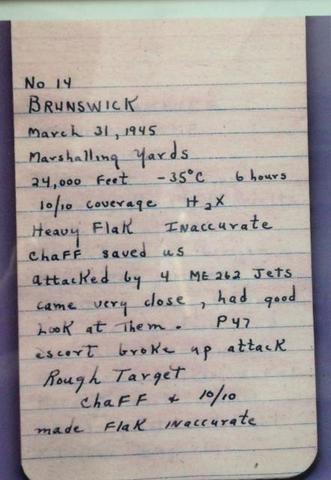 No 14
BRUNSWICK
March 31, 1945
Marshalling Yards
24,000 Feet -35°C 6 hours
10/10 coverage H2X
Heavy Flak Inaccurate
Chaff saved us
attacked by 4 ME 262 Jets
came very close, had good
look at them. P47
escort broke up attack
Rough Target
Chaff & 10/10
made Flak inaccurate